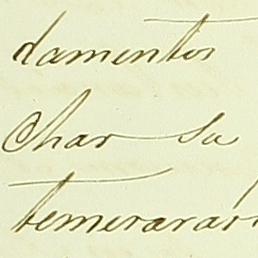 damentos
char su
temerarari